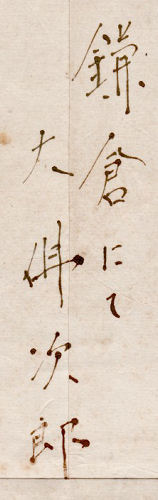 鎌倉にて
大佛次郎